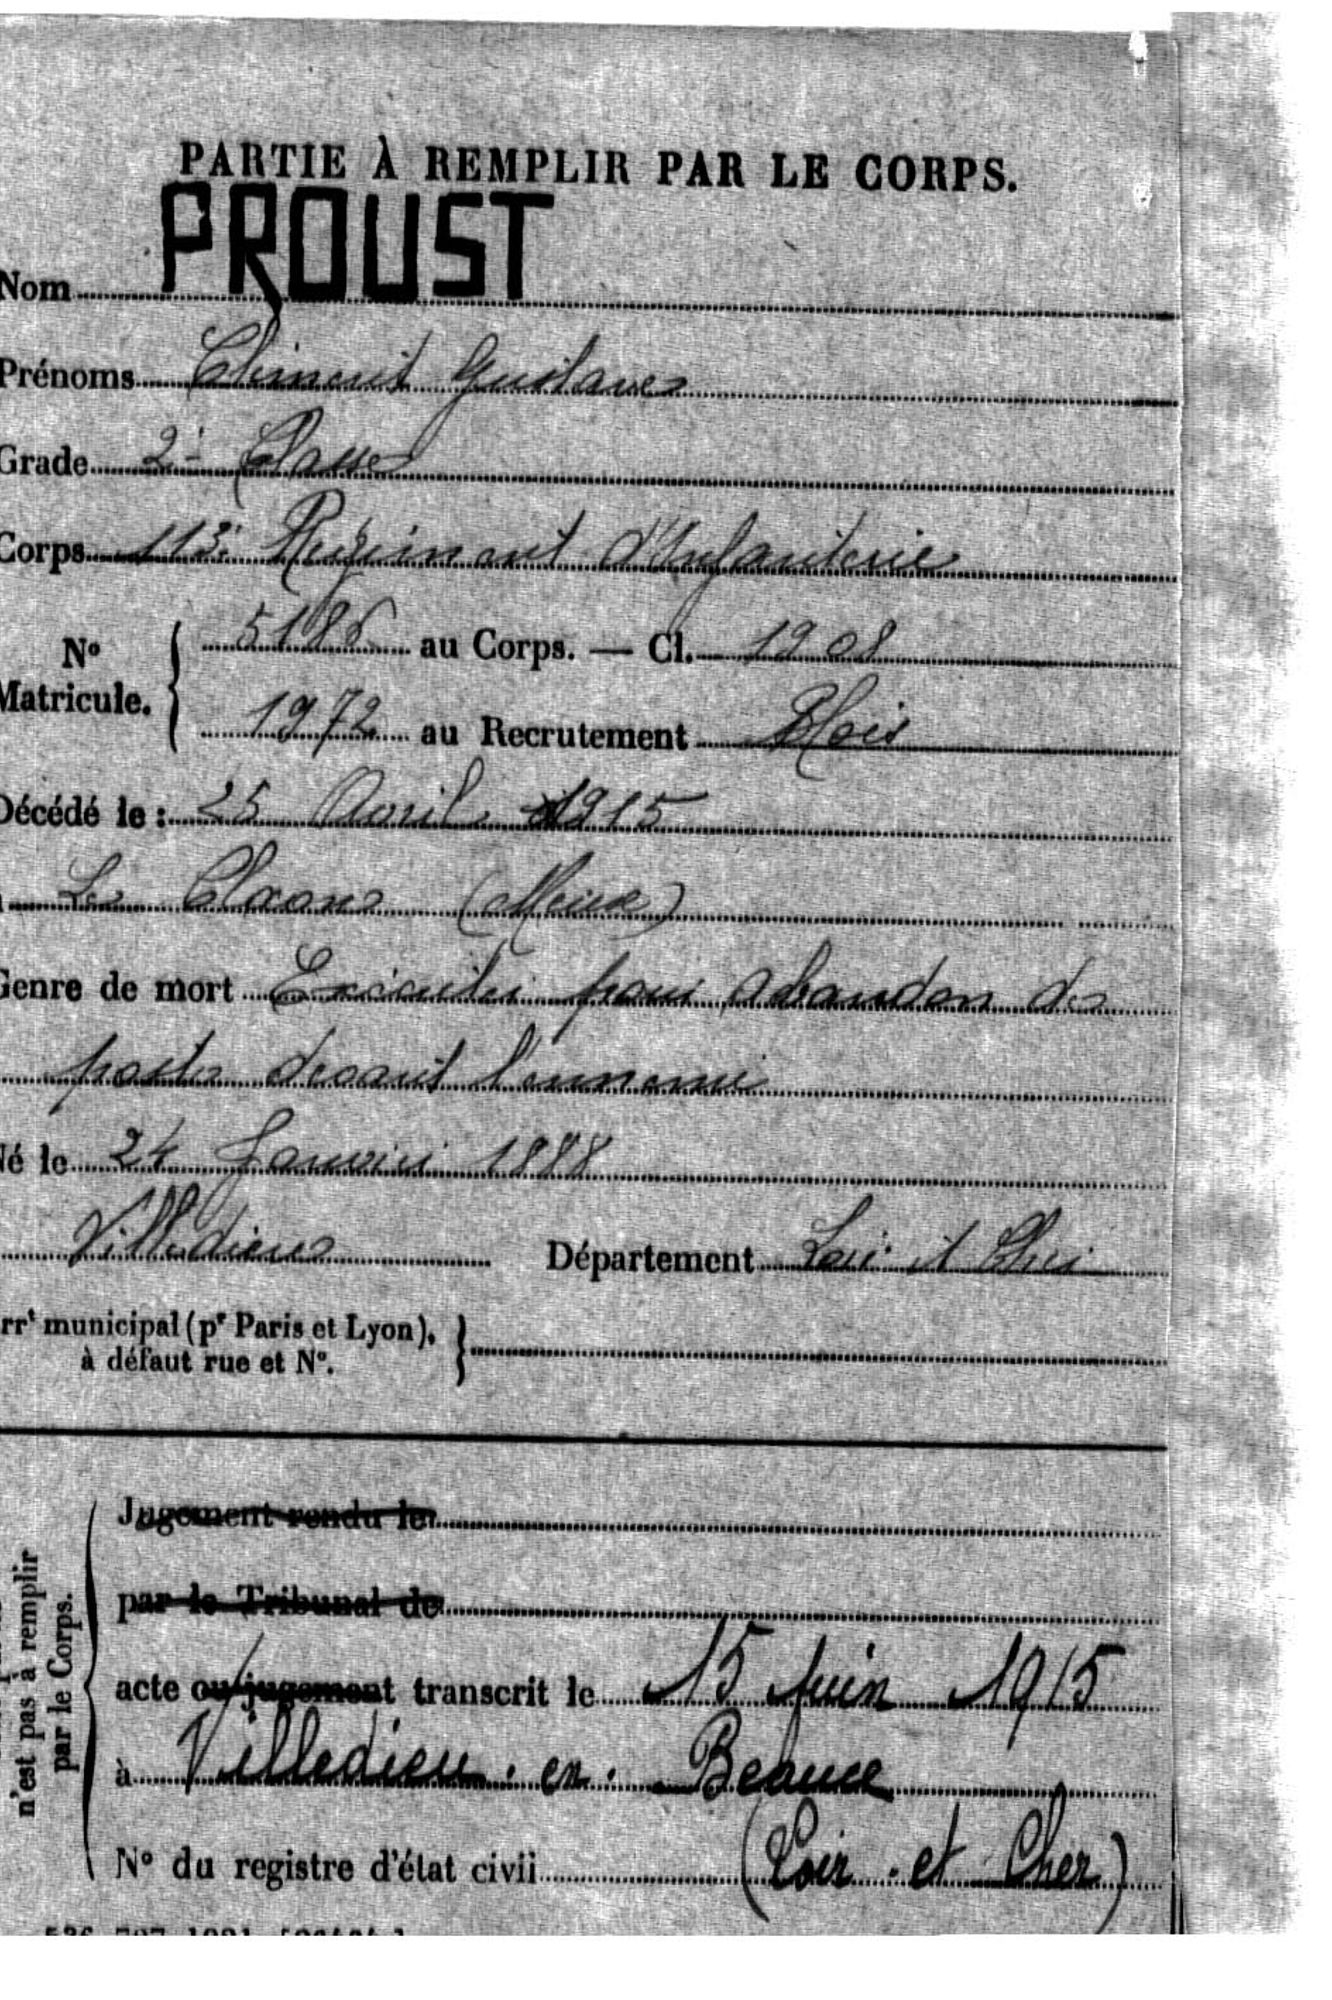 PARTIE À REMPLIR PAR LE CORPS.
Nom PROUST
Prénoms Clément Gustave
Grade 2e Classe
Corps 113e Régiment d'Infanterie
No Matricule. { 5186 au Corps. — Cl. 1908
1972 au Recrutement Blois
Décédé le : 25 Avril 1915
Les (Meuse)
Genre de mort Exécuté pour abandon de
poste devant l'ennemi
Né le 24 Janvier 1888
Villedieu Département Loir et Cher
rrt municipal (pr Paris et Lyon), }
à défaut rue et No.
n'est pas à remplir
par le Corps.
Jugement rendu le
par le Tribunal de
acte ou jugement transcrit le 15 Juin 1915
à Villedieu-en-Beauce
No du registre d'état civil (Loir-et-Cher)